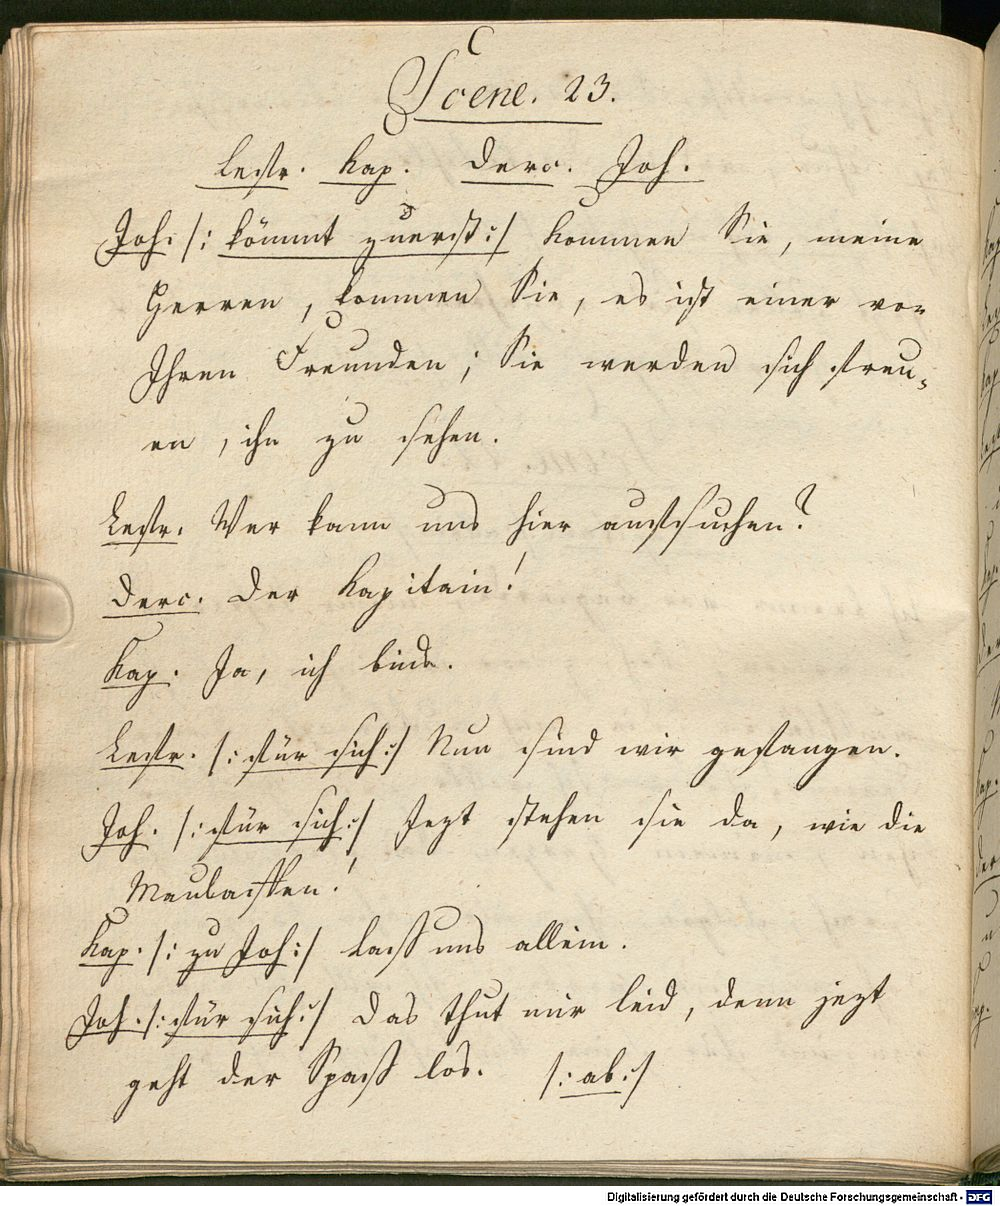 Scene. 23.
Lestr. Kap. Derc. Joh.
Joh. /: kömmt zuerst :/ Kommen Sie, meine
Herren, kommen Sie, es ist einer von
Ihren Freunden; Sie werden sich freu-
en, ihn zu sehen.
Lestr. Wer kann uns hier aufsuchen?
Derc. Der Kapitain!
Kap. Ja, ich bins.
Lestr. /: für sich :/ Nun sind wir gefangen.
Joh. /: für sich :/ Jezt stehen sie da, wie die
Maulaffen!
Kap. /: zu Joh :/ Laß uns allein.
Joh. /: für sich :/ Das thut mir leid, denn jezt
geht der Spaß los. /: ab :/
Digitalisierung gefördert durch die Deutsche Forschungsgemeinschaft - DFG